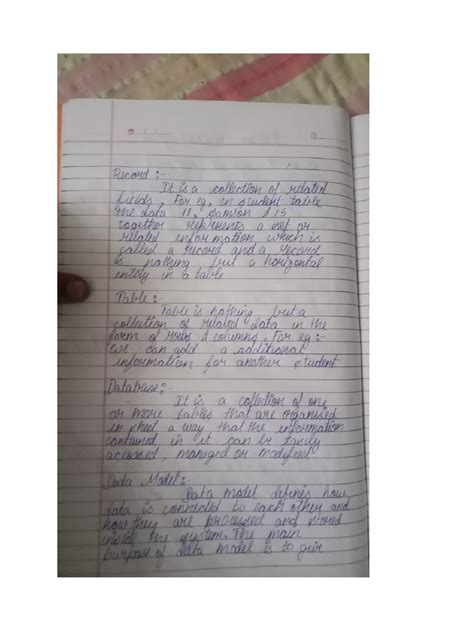 Record :-
It is a collection of related
fields. For eg, in student table
the data 11, Samson & 15
together represents a set of
related information which is
called a record and a record
is nothing but a horizontal
entity in a table
Table :-
Table is nothing but a
collection of related data in the
form of rows & columns. For eg :-
We can add a additional
information for another student
Database :-
It is a collection of one
or more tables that are organised
in a way that the information
contained in it can be easily
accessed, managed or modified
Data Model :-
Data model defines how
data is connected to each other and
how they are processed and stored
inside the system. The main
purpose of data model is to give